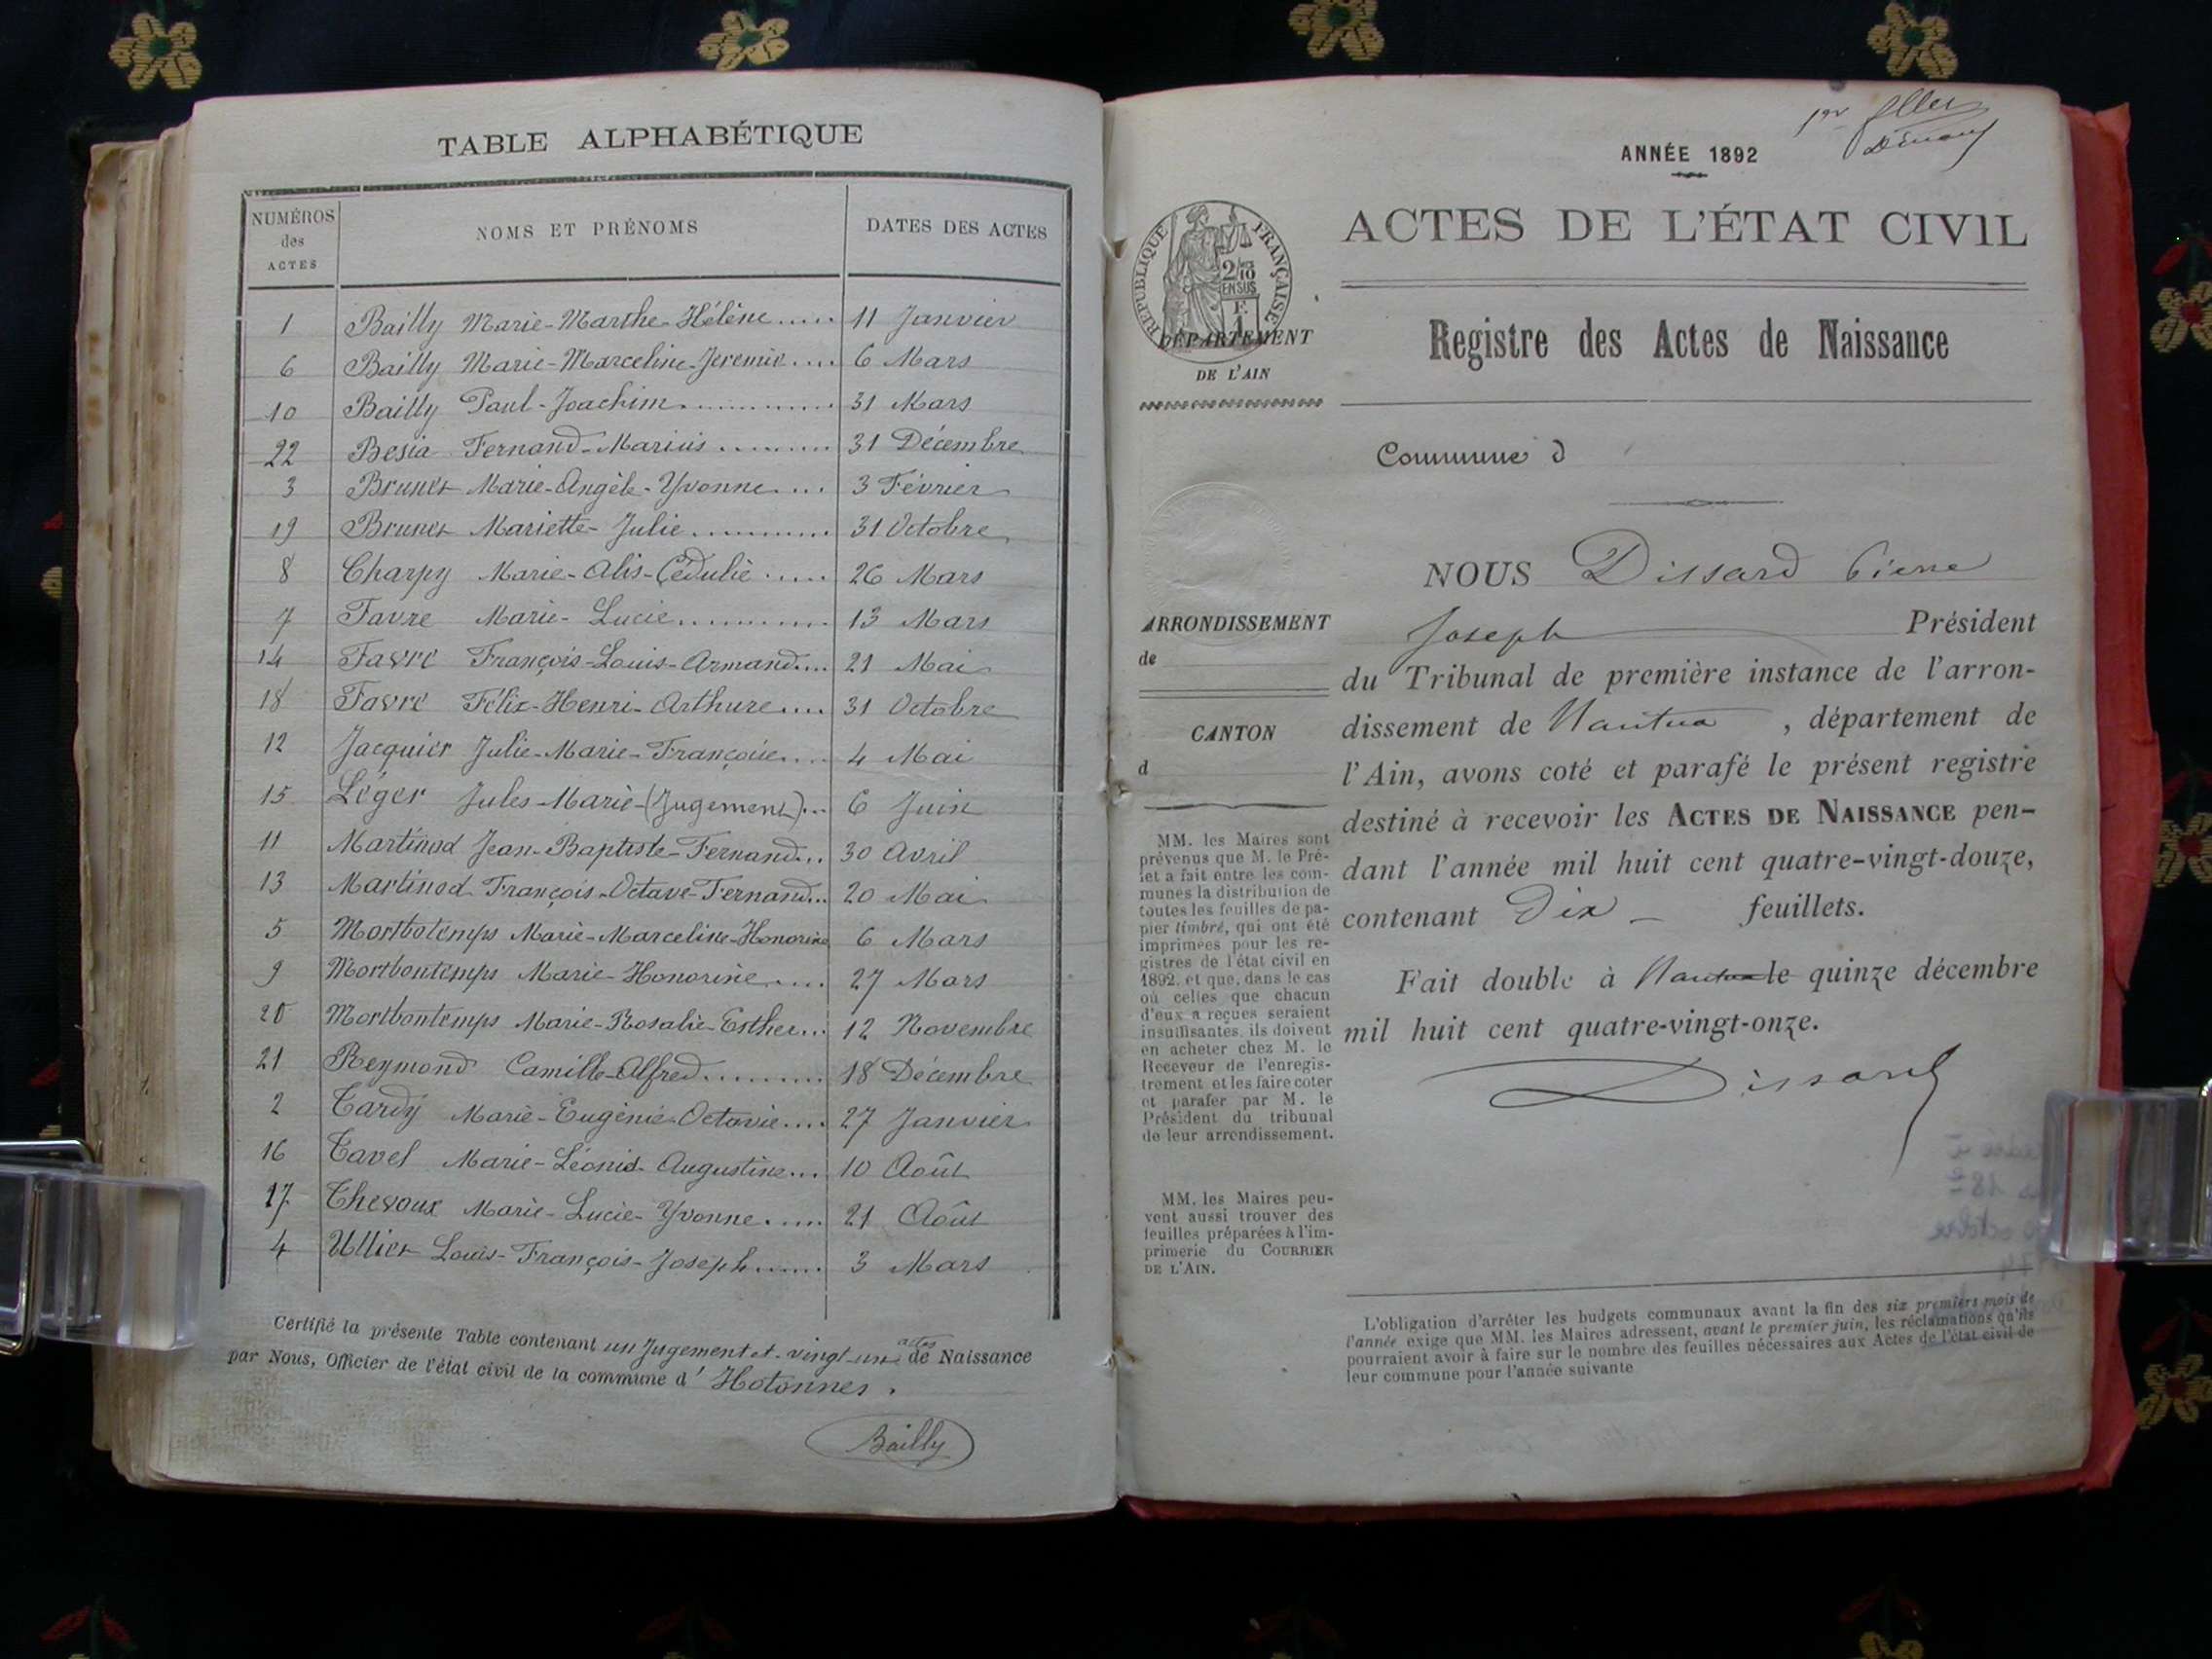 TABLE ALPHABÉTIQUE
NUMÉROS des ACTES NOMS ET PRÉNOMS DATES DES ACTES
1 Bailly Marie-Marthe-Hélène ..... 11 Janvier
6 Bailly Marie-Marceline-Jeremie .... 6 Mars
10 Bailly Paul-Joachim ............. 31 Mars
22 Besia Fernand-Marius ......... 31 Décembre
3 Brunet Marie-Angèle-Yvonne .... 3 Février
19 Brunet Mariette-Julie ........... 31 Octobre
8 Charpy Marie-Alis-Cédulie ..... 26 Mars
7 Favre Marie-Lucie ............ 13 Mars
14 Favre François-Louis-Armand .... 21 Mai
18 Favre Félix-Henri-Arthure .... 31 Octobre
12 Jacquier Julie-Marie-Françoise .... 4 Mai
15 Léger Jules-Marie-(Jugement) ... 6 Juin
11 Martinod Jean-Baptiste-Fernand ... 30 Avril
13 Martinod François-Octave-Fernand ... 20 Mai
5 Mortbotemps Marie-Marceline-Honorine 6 Mars
9 Mortbontemps Marie-Honorine .... 27 Mars
20 Mortbontemps Marie-Rosalie-Esther ... 12 Novembre
21 Reymond Camille-Alfred ......... 18 Décembre
2 Tardy Marie-Eugénie-Octavie .... 27 Janvier
16 Tavel Marie-Léonid-Augustine ... 10 Août
17 Thevoux Marie-Lucie-Yvonne ..... 21 Août
4 Ullier Louis-François-Joseph ...... 3 Mars
Certifié la présente Table contenant un Jugement et vingt-un actes de Naissance
par Nous, Officier de l'état civil de la commune d' Hotonnes.
Bailly
ANNÉE 1892
ACTES DE L'ÉTAT CIVIL
RÉPUBLIQUE FRANÇAISE
2/10 EN SUS
DÉPARTEMENT
DE L'AIN
Registre des Actes de Naissance
Commune d
ARRONDISSEMENT
de
CANTON
d
MM. les Maires sont
prévenus que M. le Pré-
fet a fait entre les com-
munes la distribution de
toutes les feuilles de pa-
pier timbré, qui ont été
imprimées pour les re-
gistres de l'état civil en
1892, et que, dans le cas
où celles que chacun
d'eux a reçues seraient
insuffisantes, ils doivent
en acheter chez M. le
Receveur de l'enregis-
trement et les faire coter
et parafer par M. le
Président du tribunal
de leur arrondissement.
MM. les Maires peu-
vent aussi trouver des
feuilles préparées à l'im-
primerie du COURRIER
DE L'AIN.
NOUS Dissard Pierre
Joseph Président
du Tribunal de première instance de l'arron-
dissement de Nantua, département de
l'Ain, avons coté et parafé le présent registre
destiné à recevoir les ACTES DE NAISSANCE pen-
dant l'année mil huit cent quatre-vingt-douze,
contenant Dix feuillets.
Fait double à Nantua le quinze décembre
mil huit cent quatre-vingt-onze.
Dissard
L'obligation d'arrêter les budgets communaux avant la fin des six premiers mois de
l'année exige que MM. les Maires adressent, avant le premier juin, les réclamations qu'ils
pourraient avoir à faire sur le nombre des feuilles nécessaires aux Actes de l'état civil de
leur commune pour l'année suivante